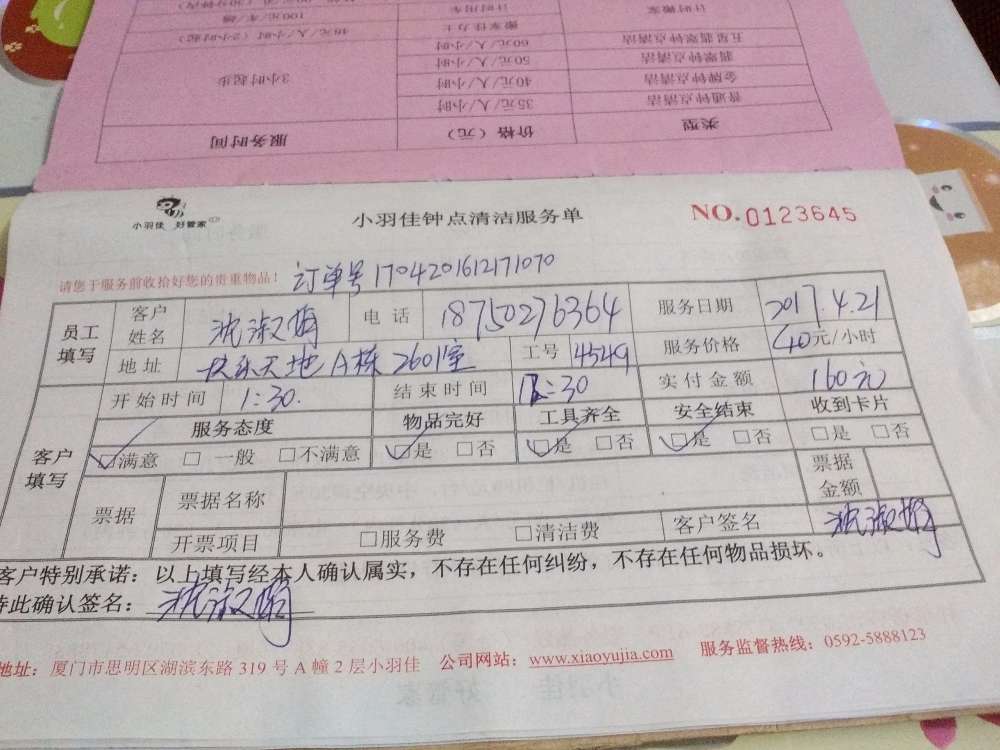 计时搬家 计时用车
搬家佳力士 100元/车/趟
五星翡翠钟点清洁 60元/人/小时 48元/人/小时(2小时起)
翡翠钟点清洁 50元/人/小时
金牌钟点清洁 40元/人/小时 3小时起步
普通钟点清洁 35元/人/小时
类型 价格(元) 服务时间
小羽佳 好管家
小羽佳钟点清洁服务单
NO.0123645
请您于服务前收拾好您的贵重物品!
订单号1704201612171070
员工填写 客户姓名 沈淑娟 电话 18750276364 服务日期 2017.4.21
地址 快乐天地A栋2601室 工号 4549 服务价格 40元/小时
开始时间 1:30. 结束时间 :30 实付金额 160元
客户填写 服务态度 物品完好 工具齐全 安全结束 收到卡片
☑满意 □一般 □不满意 ☑是 □否 ☑是 □否 ☑是 □否 □是 □否
票据 票据名称 票据金额
开票项目 □服务费 □清洁费 客户签名 沈淑娟
客户特别承诺:以上填写经本人确认属实,不存在任何纠纷,不存在任何物品损坏。
特此确认签名: 沈淑娟
地址:厦门市思明区湖滨东路319号A幢2层小羽佳 公司网站:www.xiaoyujia.com 服务监督热线:0592-5888123